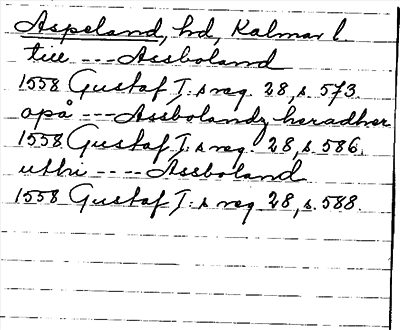 Aspeland, hd, Kalmar l
till --- Assboland
1558 Gustaf I:s reg. 28, s. 573.
opå --- Assbolandz heradher
1558 Gustaf I:s reg. 28, s. 586.
uthi ---- Assboland
1558 Gustaf I:s reg. 28, s. 588.